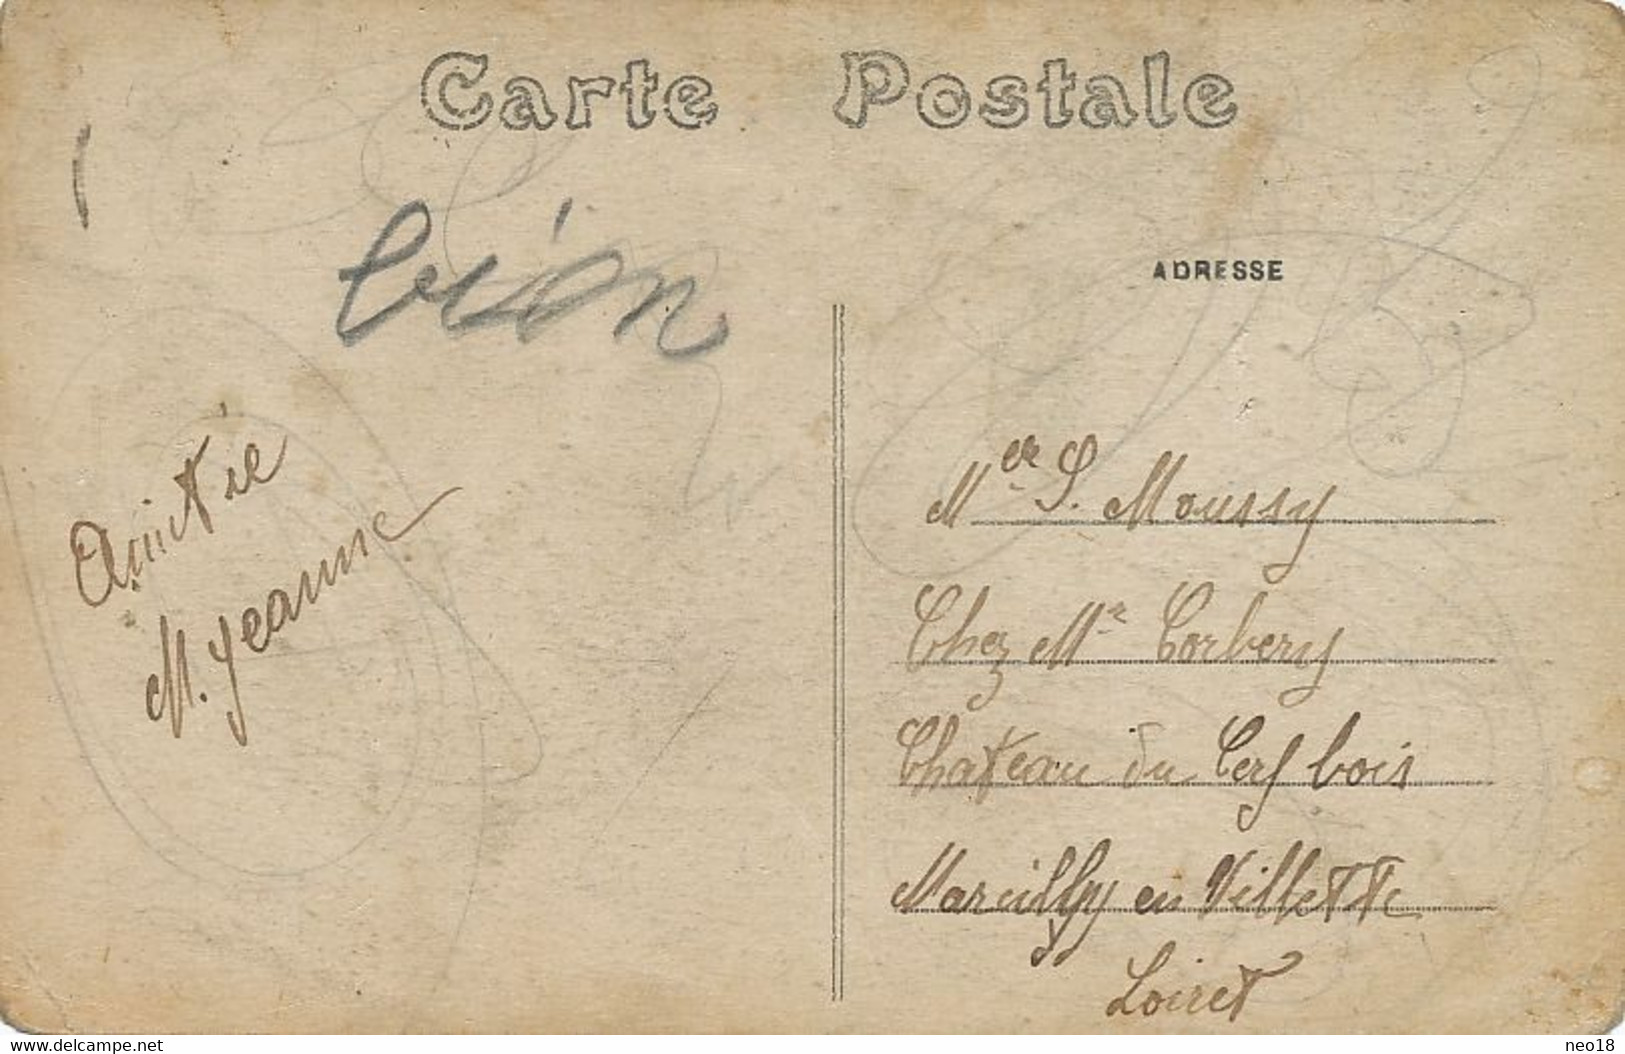 Carte Postale
ADRESSE
Amitié
M. Jeanne
Mer S. Moussy
Chez Mr Corbery
Chateau du Cerf bois
Marcilly en Villette
Loiret
www.delcampe.net
neo18